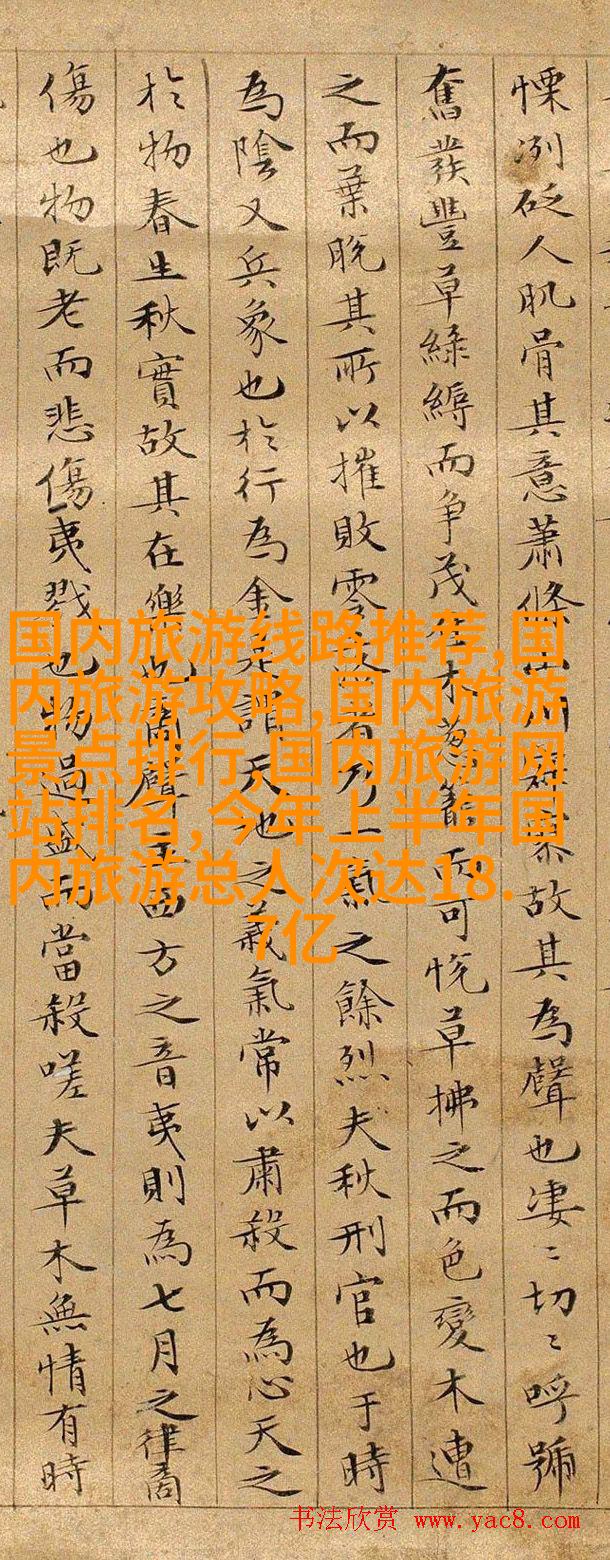 慄冽砭人肌骨其意蕭條山川寂寥故其為聲也淒〻切〻呼號
奮發豐草綠縟而爭茂佳木蔥籠而可悅草拂之而色變木遭
之而葉脫其所以摧敗零落者乃一氣之餘烈夫秋刑官也于時
為陰又兵象也於行為金是謂天地之義氣常以肅殺而為心天之
於物春生秋實故其在樂也商聲主西方之音夷則為七月之律商
傷也物既老而悲傷夷戮也物過盛而當殺嗟夫草木無情有時
国内旅游线路推荐,国
内旅游攻略,国内旅游
景点排行,国内旅游网
站排名,今年上半年国
内旅游总人次达18.
7亿
书法欣赏 www.yac8.com